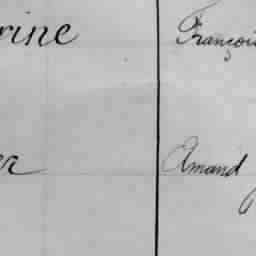 rine Françoi
er Amand